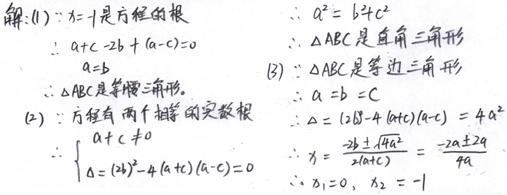 解:(1) ∵ x=-1是方程的根
∴ a+c-2b+(a-c)=0
a=b
∴ △ABC是等腰三角形。
(2) ∵ 方程有两个相等的实数根
∴ { a+c≠0
Δ=(2b)²-4(a+c)(a-c)=0
∴ a²=b²+c²
∴ △ABC是直角三角形
(3) ∵ △ABC是等边三角形
∴ a=b=c
∴ Δ=(2b)²-4(a+c)(a-c)=4a²
∴ x=\frac{-2b±\sqrt{4a²}}{2(a+c)}=\frac{-2a±2a}{4a}
∴ x₁=0, x₂=-1